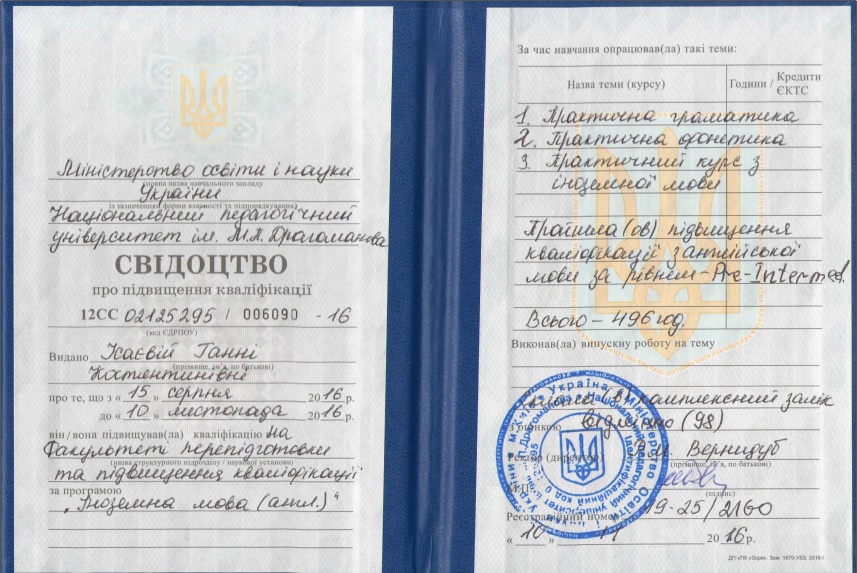 Міністерство освіти і науки
(повна назва навчального закладу
України
із зазначенням форми власності та підпорядкування)
Національний педагогічний
університет ім. М.П. Драгоманова
СВІДОЦТВО
про підвищення кваліфікації
12СС 02125295 / 006090 -16
(код ЄДРПОУ)
Видано Ісаєвій Ганні
(прізвище, ім’я, по батькові)
Костянтинівні
про те, що з « 15 » серпня 2016 р.
до « 10 » листопада 2016 р.
він/вона підвищував(ла) кваліфікацію на
Факультеті перепідготовки
(назва структурного підрозділу / наукової установи)
та підвищення кваліфікації
за програмою
„Іноземна мова (англ.)“
За час навчання опрацював(ла) такі теми:
Назва теми (курсу) Години / Кредити ЄКТС
1. Практична граматика
2. Практична фонетика
3. Практичний курс з
іноземної мови
Пройшла (ов) підвищення
кваліфікації з англійської
мови за рівнем - Pre-Intermed.
Всього - 496 год.
Виконав(ла) випускну роботу на тему
комплексний залік
з оцінкою відмінно (98)
Ректор (директор) Вернидуб
(прізвище, ім’я, по батькові)
М.П.
(підпис)
Реєстраційний номер 19-25/2160
« 10 » 11 2016 р.